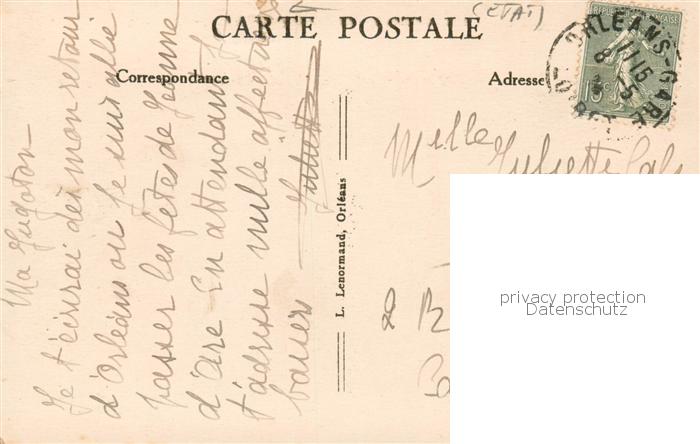 CARTE POSTALE
(ETAT)
Correspondance
Adresse
ORLEANS-GARE
15 c
Ma
Je t'écrirai dès mon retour
d'Orléans où je suis allée
passer les fêtes de Jeanne
d'Arc En attendant
t'adresse mille affectueux
baisers
L. Lenormand, Orléans
Melle Juliette
2 R
privacy protection
Datenschutz